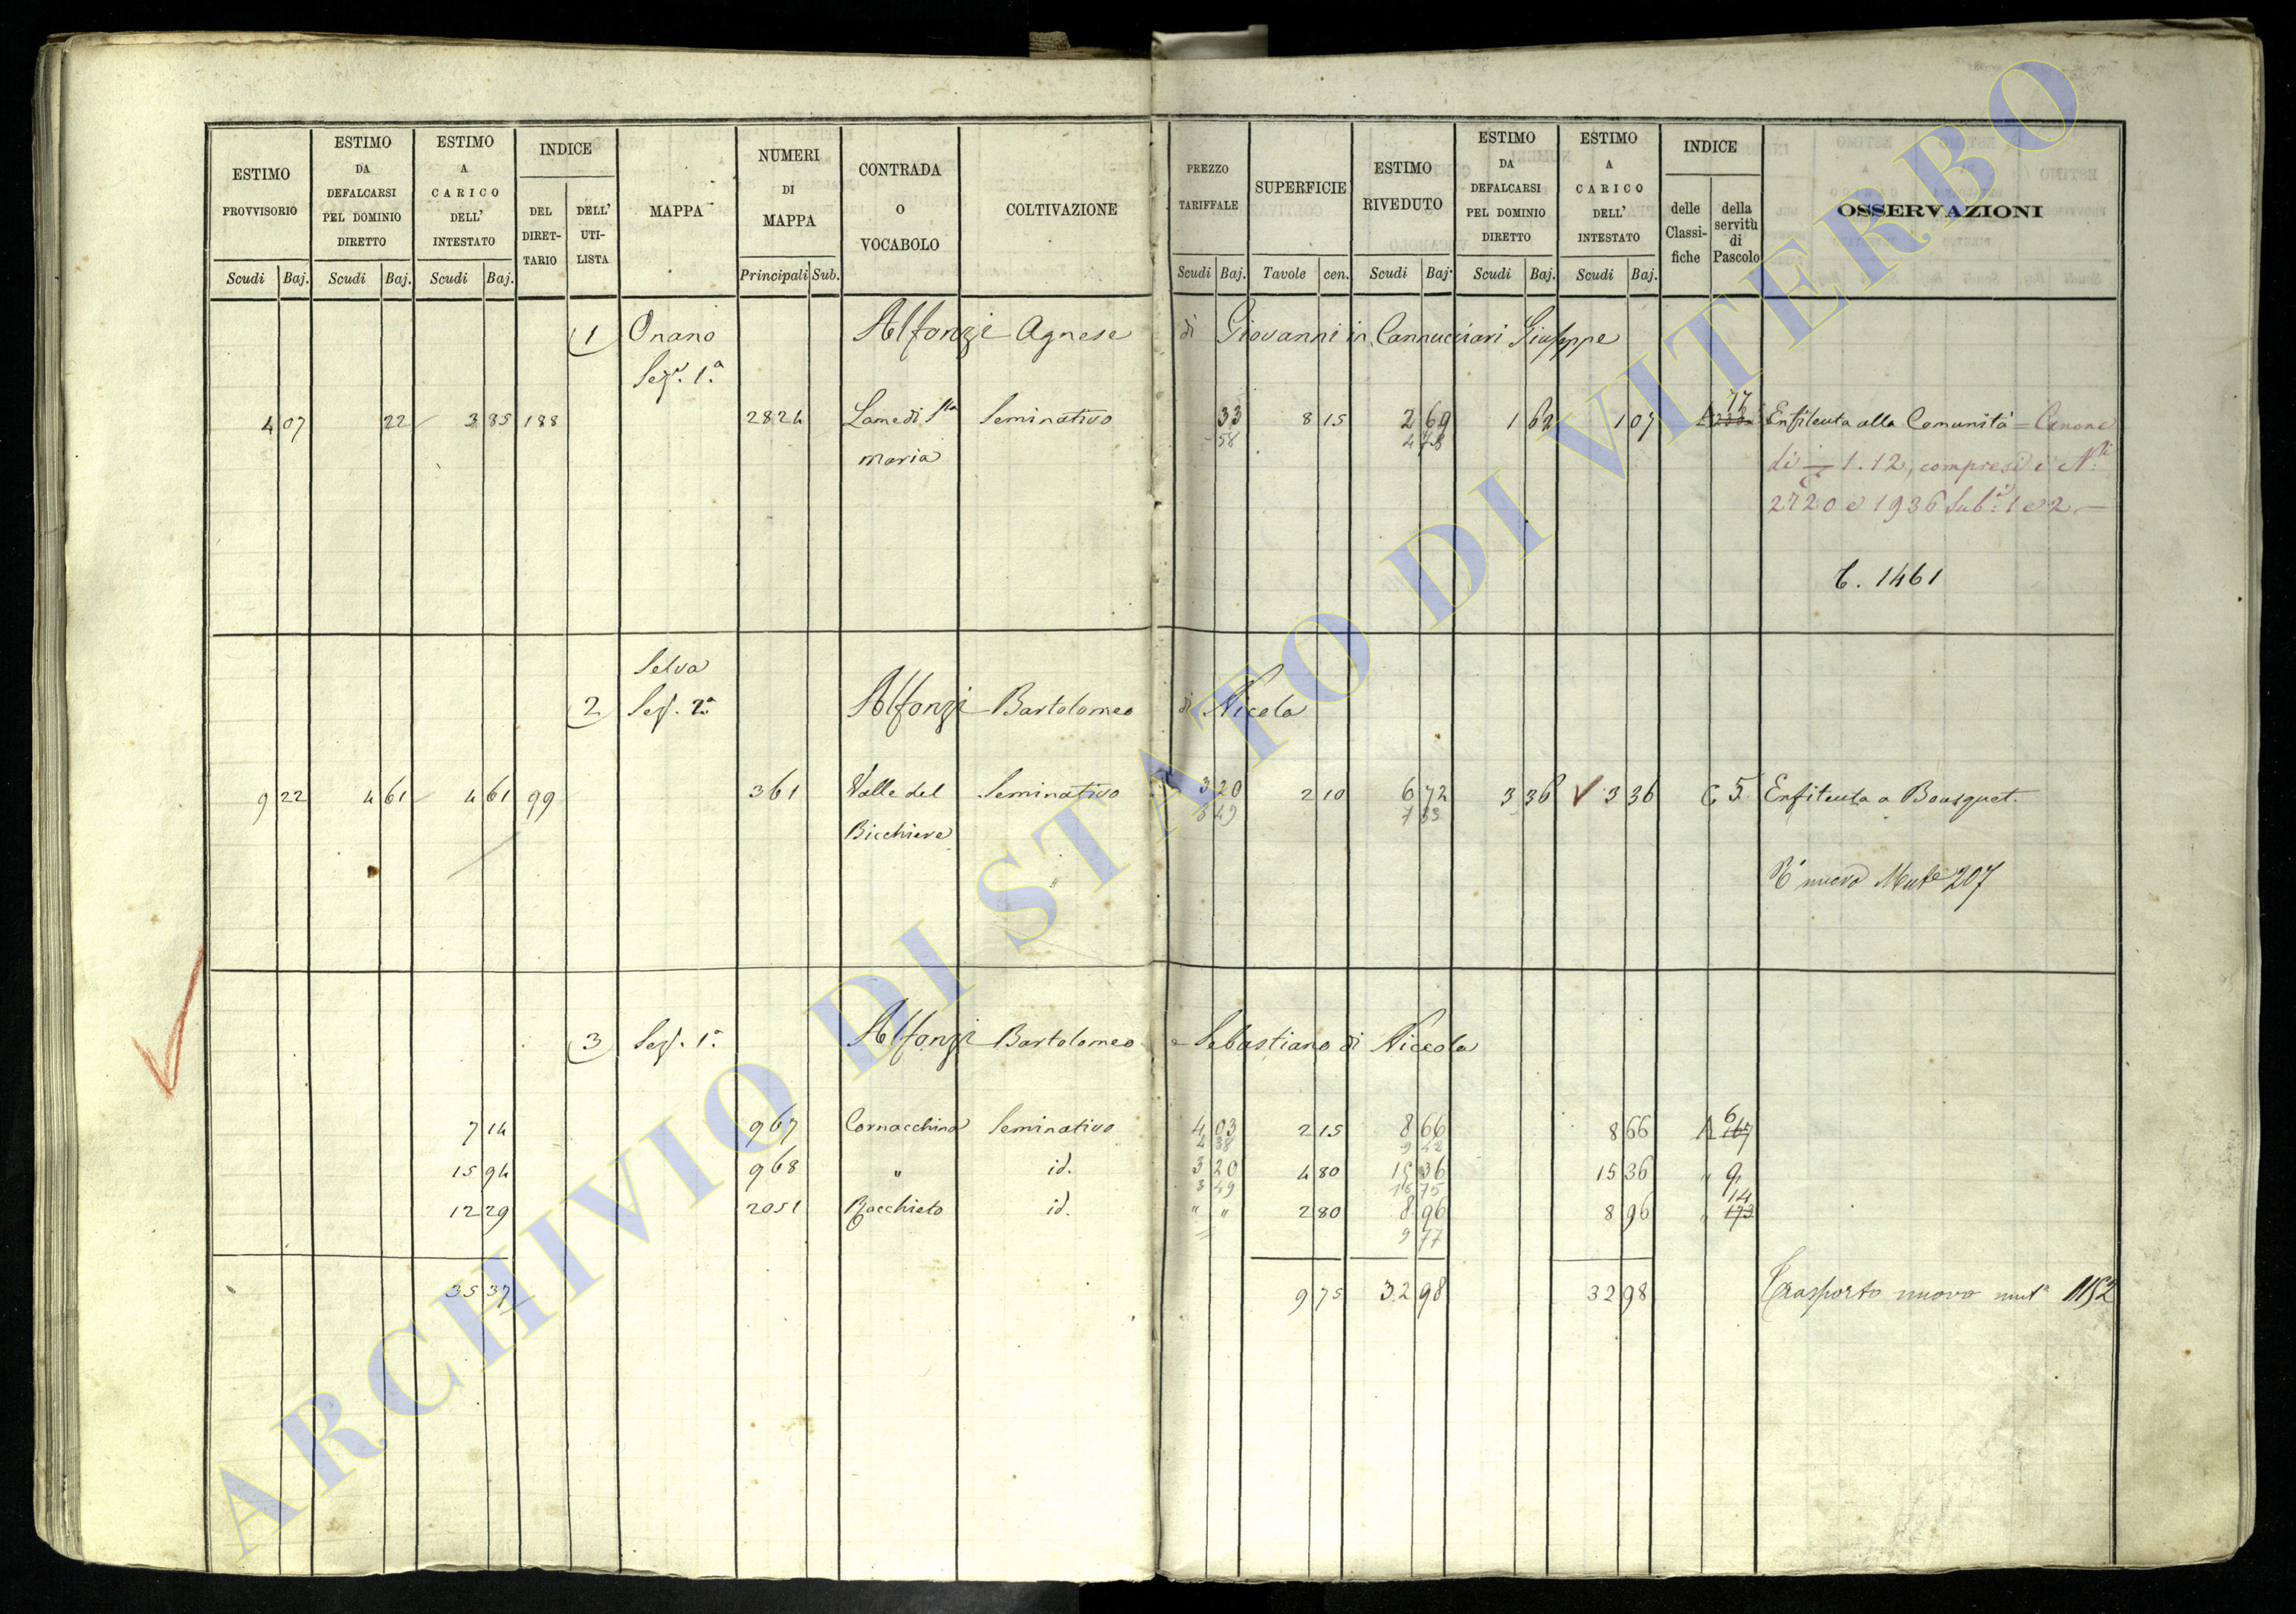 ESTIMO PROVVISORIO
ESTIMO DA DEFALCARSI PEL DOMINIO DIRETTO
ESTIMO A CARICO DELL' INTESTATO
INDICE
DEL DIRET-TARIO
DELL' UTI-LISTA
MAPPA
NUMERI DI MAPPA
CONTRADA O VOCABOLO
COLTIVAZIONE
PREZZO TARIFFALE
SUPERFICIE
ESTIMO RIVEDUTO
ESTIMO DA DEFALCARSI PEL DOMINIO DIRETTO
ESTIMO A CARICO DELL' INTESTATO
INDICE
delle Classi-fiche
della servitù di Pascolo
OSSERVAZIONI
Scudi Baj. Scudi Baj. Scudi Baj. Principali Sub. Scudi Baj. Tavole cen. Scudi Baj. Scudi Baj. Scudi Baj.
1 Onano Alfonzi Agnese di Giovanni in Cannucciari Giuseppe
Sez. 1.a
4 07 22 3 85 188 2824 Lame di Sta Seminativo 33 8 15 2 69 1 62 1 07 A 17 Enfiteuta alla Comunità = Canone
58 4 73
Maria di 1.12, compresi i Ni
2720 e 1936 Sub. 1 e 2 —
C. 1461
Selva
2 Sez. 2a Alfonzi Bartolomeo di Nicola
9 22 4 61 4 61 99 361 Valle del Seminativo 3 20 2 10 6 72 3 36 3 36 C 5 Enfiteuta a Bousquet.
3 49 7 33
Bicchiere
nuovo Mute 207
3 Sez. 1a Alfonzi Bartolomeo e Sebastiano di Niccola
7 14 967 Cornacchino Seminativo 4 03 2 15 8 66 8 66 A 6 167
4 38 9 42
15 94 968 " id. 3 20 4 80 15 36 15 36 " 9
3 49 16 75
12 29 2051 Bacchieto id. " " 2 80 8 96 8 96 " 14 173
9 77
35 37 9 75 32 98 32 98 Trasporto nuovo muta 1152
ARCHIVIO DI STATO DI VITERBO